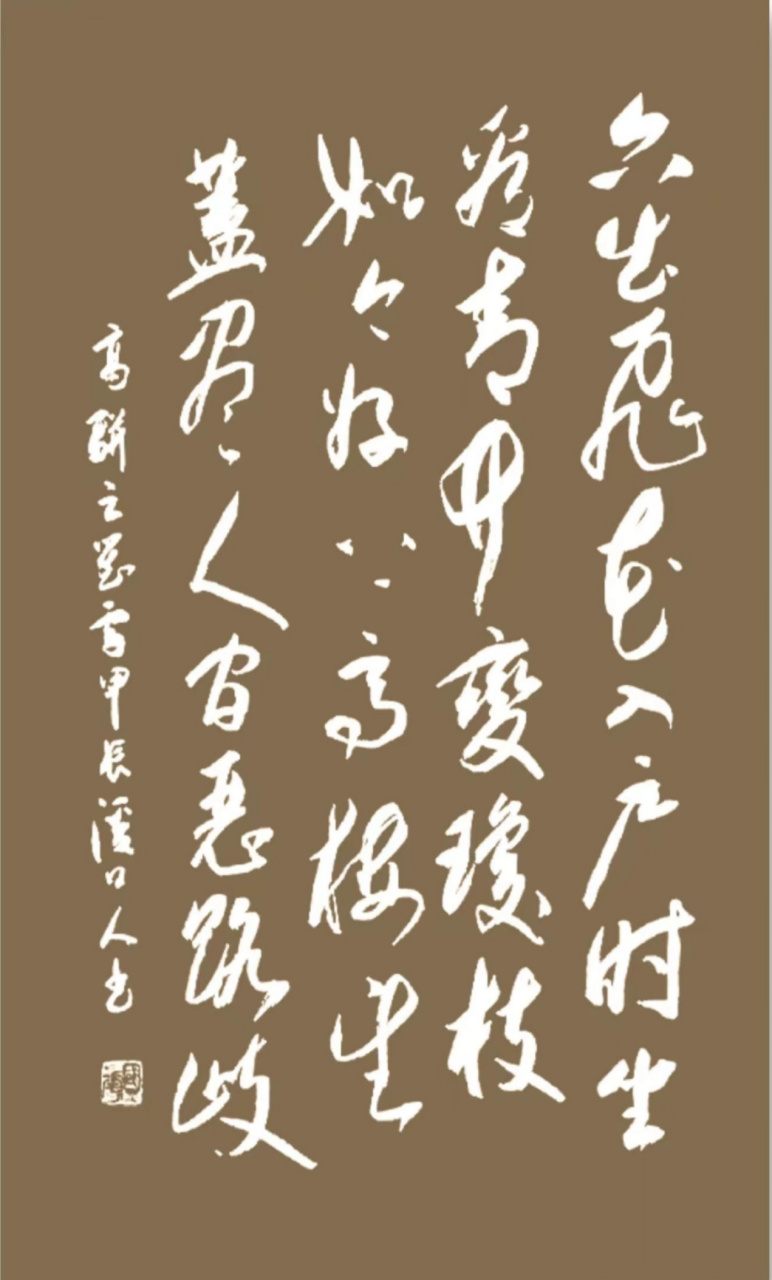 六出飛花入户时坐
看青竹變瓊枝
如今好上高楼望
蓋尽人间恶路歧
高駢之对雪甲辰溪口人书